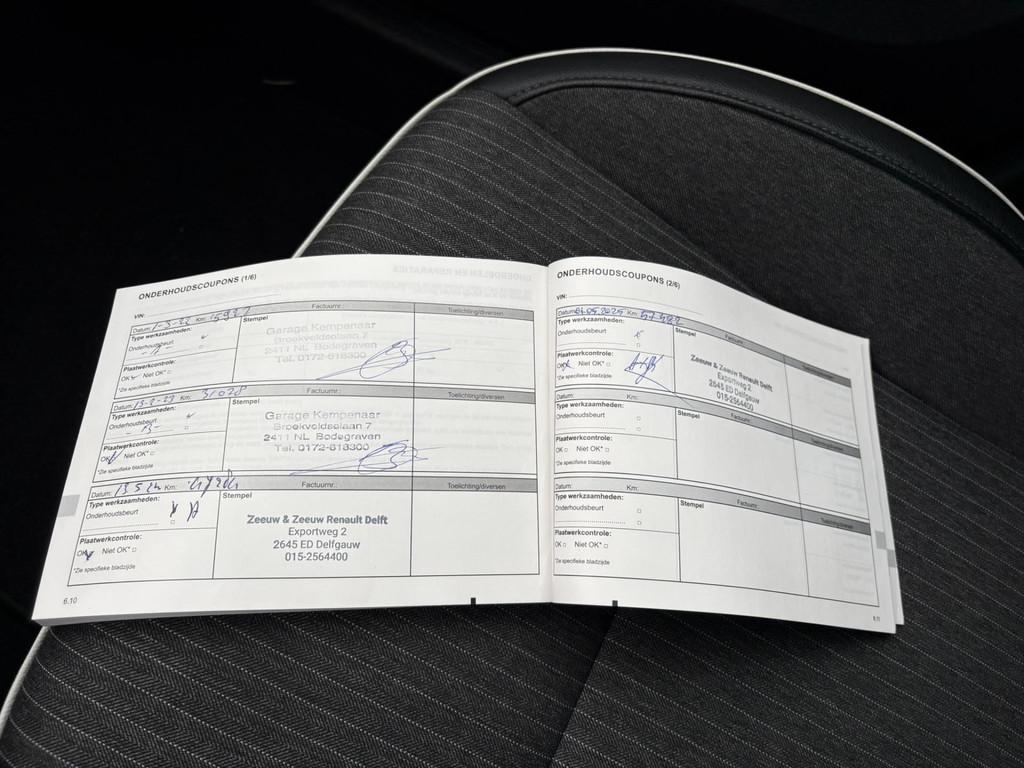 ONDERHOUDSCOUPONS (1/6)
VIN:
Datum: 1-3-22 Km: 15927 Factuurnr.: Toelichting/diversen
Type werkzaamheden: Stempel
Onderhoudsbeurt
Plaatwerkcontrole:
OK Niet OK*
*Zie specifieke bladzijde
Garage Kempenaar
Broekveldselaan 7
2411 NL Bodegraven
Tel. 0172-618300
Datum: 13-2-23 Km: 31028 Factuurnr.: Toelichting/diversen
Type werkzaamheden: Stempel
Onderhoudsbeurt
Plaatwerkcontrole:
OK Niet OK*
*Zie specifieke bladzijde
Garage Kempenaar
Broekveldselaan 7
2411 NL Bodegraven
Tel. 0172-618300
Datum: 13.5.24 Km: Factuurnr.: Toelichting/diversen
Type werkzaamheden: Stempel
Onderhoudsbeurt
Plaatwerkcontrole:
OK Niet OK*
*Zie specifieke bladzijde
Zeeuw & Zeeuw Renault Delft
Exportweg 2
2645 ED Delfgauw
015-2564400
6.10
ONDERHOUDSCOUPONS (2/6)
VIN:
Datum: 05.2025 Km: Factuurnr.: Toelichting/diversen
Type werkzaamheden: Stempel
Onderhoudsbeurt
Plaatwerkcontrole:
OK Niet OK*
*Zie specifieke bladzijde
Zeeuw & Zeeuw Renault Delft
Exportweg 2
2645 ED Delfgauw
015-2564400
Datum: Km: Factuurnr.: Toelichting/diversen
Type werkzaamheden: Stempel
Onderhoudsbeurt
Plaatwerkcontrole:
OK Niet OK*
*Zie specifieke bladzijde
Datum: Km: Factuurnr.: Toelichting/diversen
Type werkzaamheden: Stempel
Onderhoudsbeurt
Plaatwerkcontrole:
OK Niet OK*
*Zie specifieke bladzijde
6.11